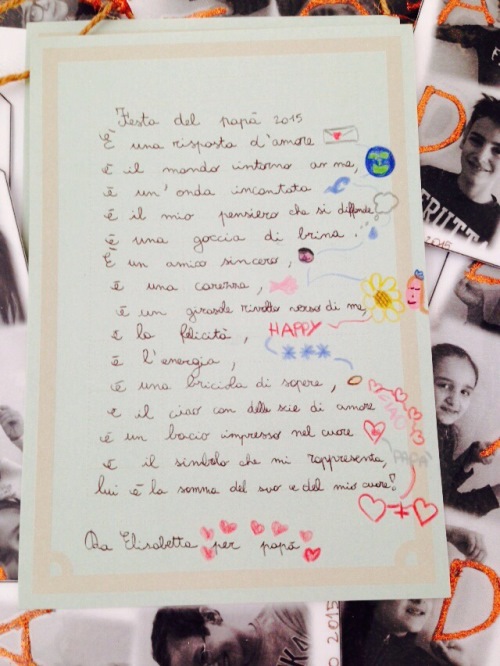 Festa del papà 2015
È una risposta d'amore
è il mondo intorno a me,
è un'onda incantata
è il mio pensiero che si diffonde
è una goccia di brina.
È un amico sincero,
è una carezza,
è un girasole rivolto verso di me,
è la felicità, HAPPY
è l'energia,
è una briciola di sapere,
è il ciao con delle scie di amore
CIAO
è un bacio impresso nel cuore
PAPÀ
è il simbolo che mi rappresenta,
lui è la somma del suo e del mio cuore!
+
Da Elisabetta per papà
A
D
FRUTTA
2015
D
A
O 2015
D